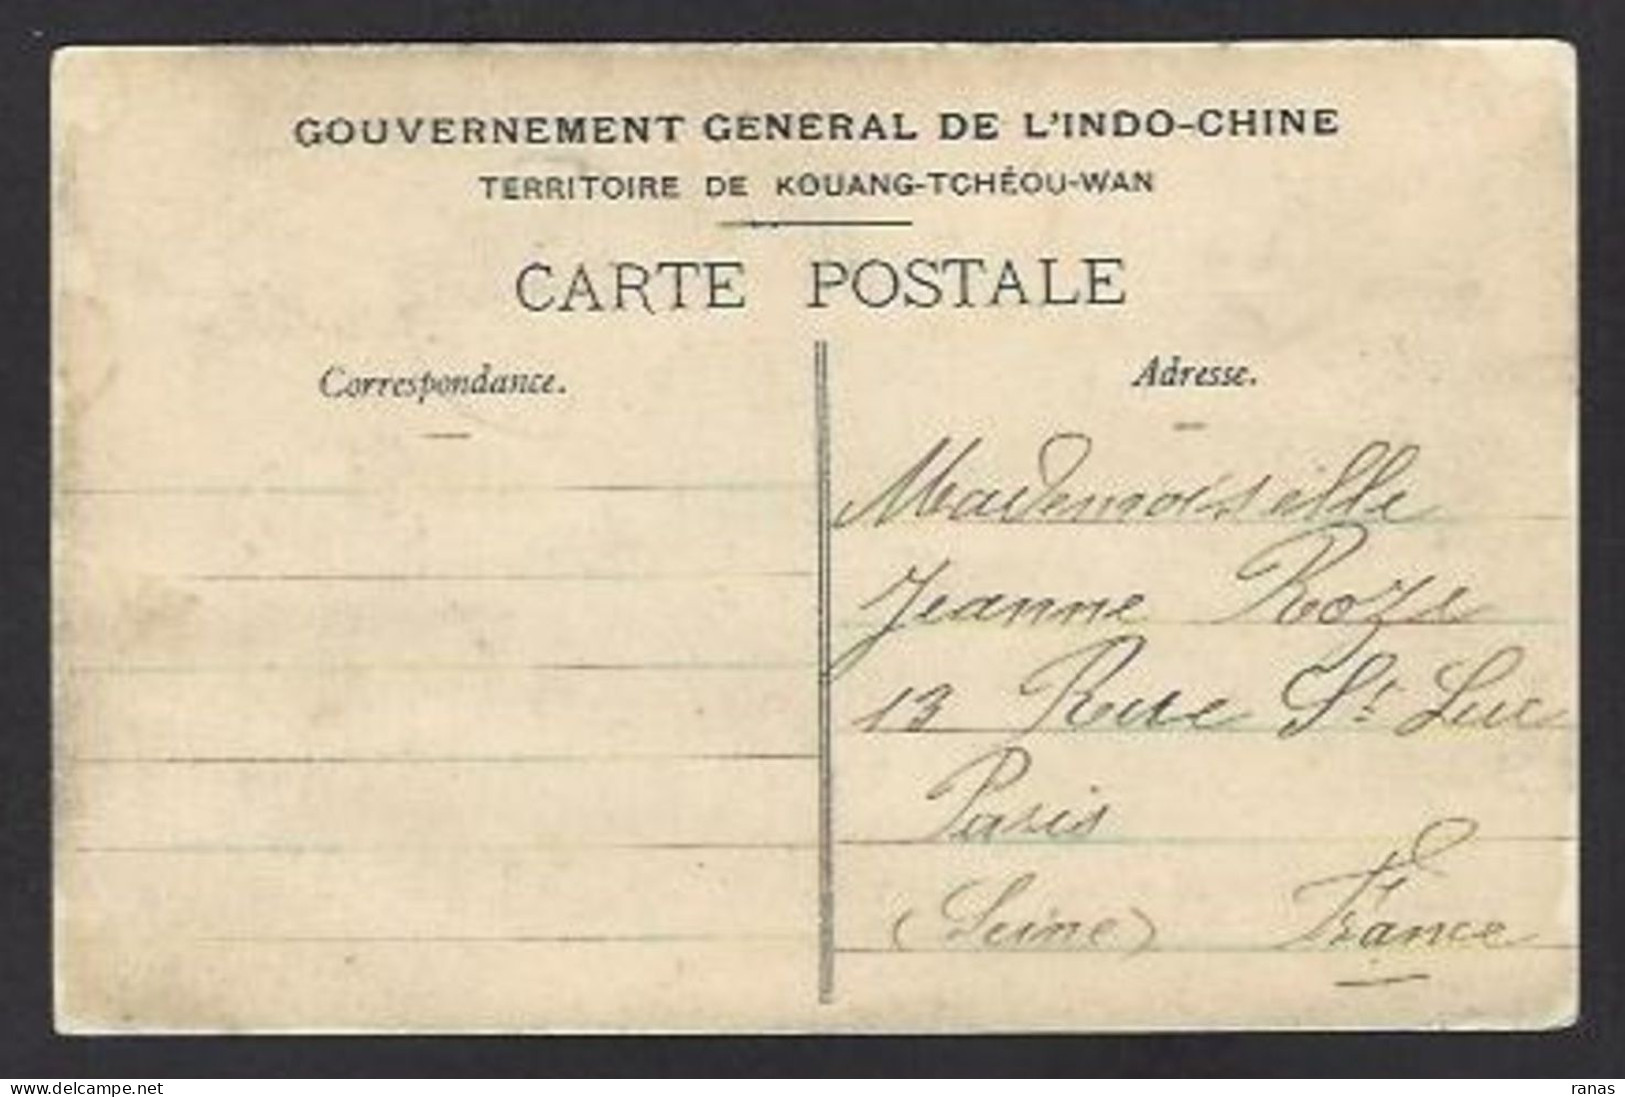 GOUVERNEMENT GENERAL DE L'INDO-CHINE
TERRITOIRE DE KOUANG-TCHÉOU-WAN
CARTE POSTALE
Correspondance.
Adresse.
Mademoiselle
Jeanne Roze
13 Rue St Luc
Paris
(Seine) France
www.delcampe.net
ranas